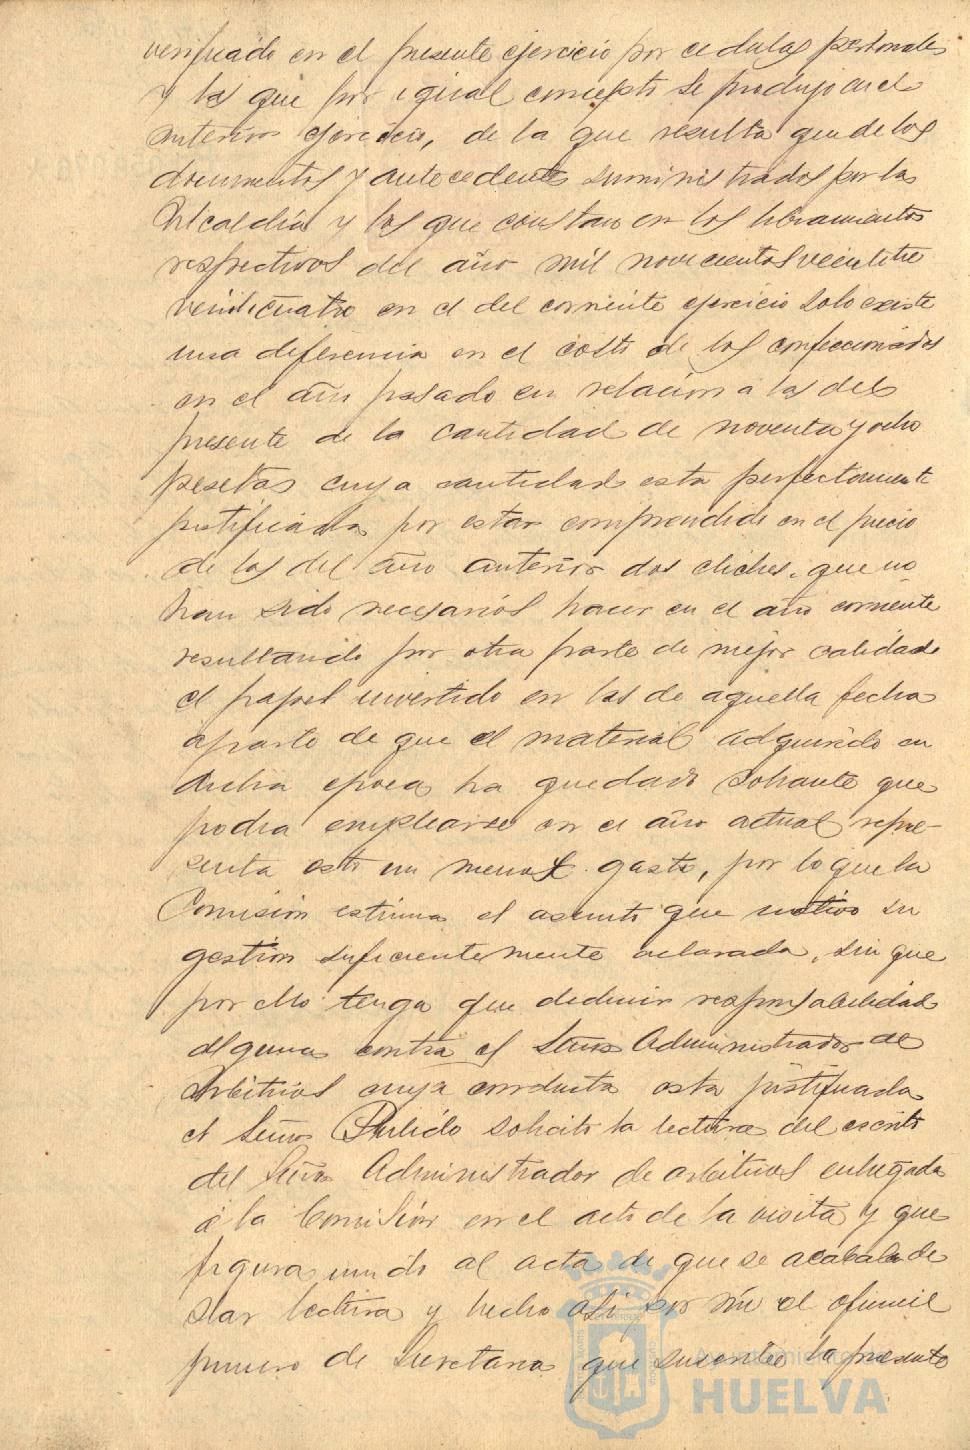 verificado en el presente ejercicio por cedulas personales
y las que por igual concepto se produjo en el
anterior ejercicio, de la que resulta que de los
documentos y antecedentes suministrados por la
Alcaldía y los que constan en los libramientos
respectivos del año mil novecientos veintitre
veinticuatro en el del corriente ejercicio solo existe
una diferencia en el costo de los confeccionados
en el año pasado en relacion a las del
presente de la cantidad de noventa y ocho
pesetas cuya cantidad esta perfectamente
justificada por estar comprendido en el precio
de las del año anterior dos cliches que no
han sido necesarios hacer en el año corriente
resultando por otra parte de mejor calidad
el papel invertido en las de aquella fecha
aparte de que el material adquirido en
dicha epoca ha quedado sobrante que
podra emplearse en el año actual repre-
senta esto un menos gasto, por lo que la
Comisión estima el asunto que motivo su
gestion suficientemente aclarada, sin que
por ello tenga que deducir responsabilidad
alguna contra el Señor Administrador de
Arbitrios cuya conducta esta justificada
el Señor Pulido solicito la lectura del escrito
del Señor Administrador de arbitrios entregada
á la Comisión en el acto de la visita y que
figura unido al acta de que se acababa de
dar lectura y hecho asi por mi el oficial
primero de Secretaria que suscribe la presente
Ayuntamiento
HUELVA